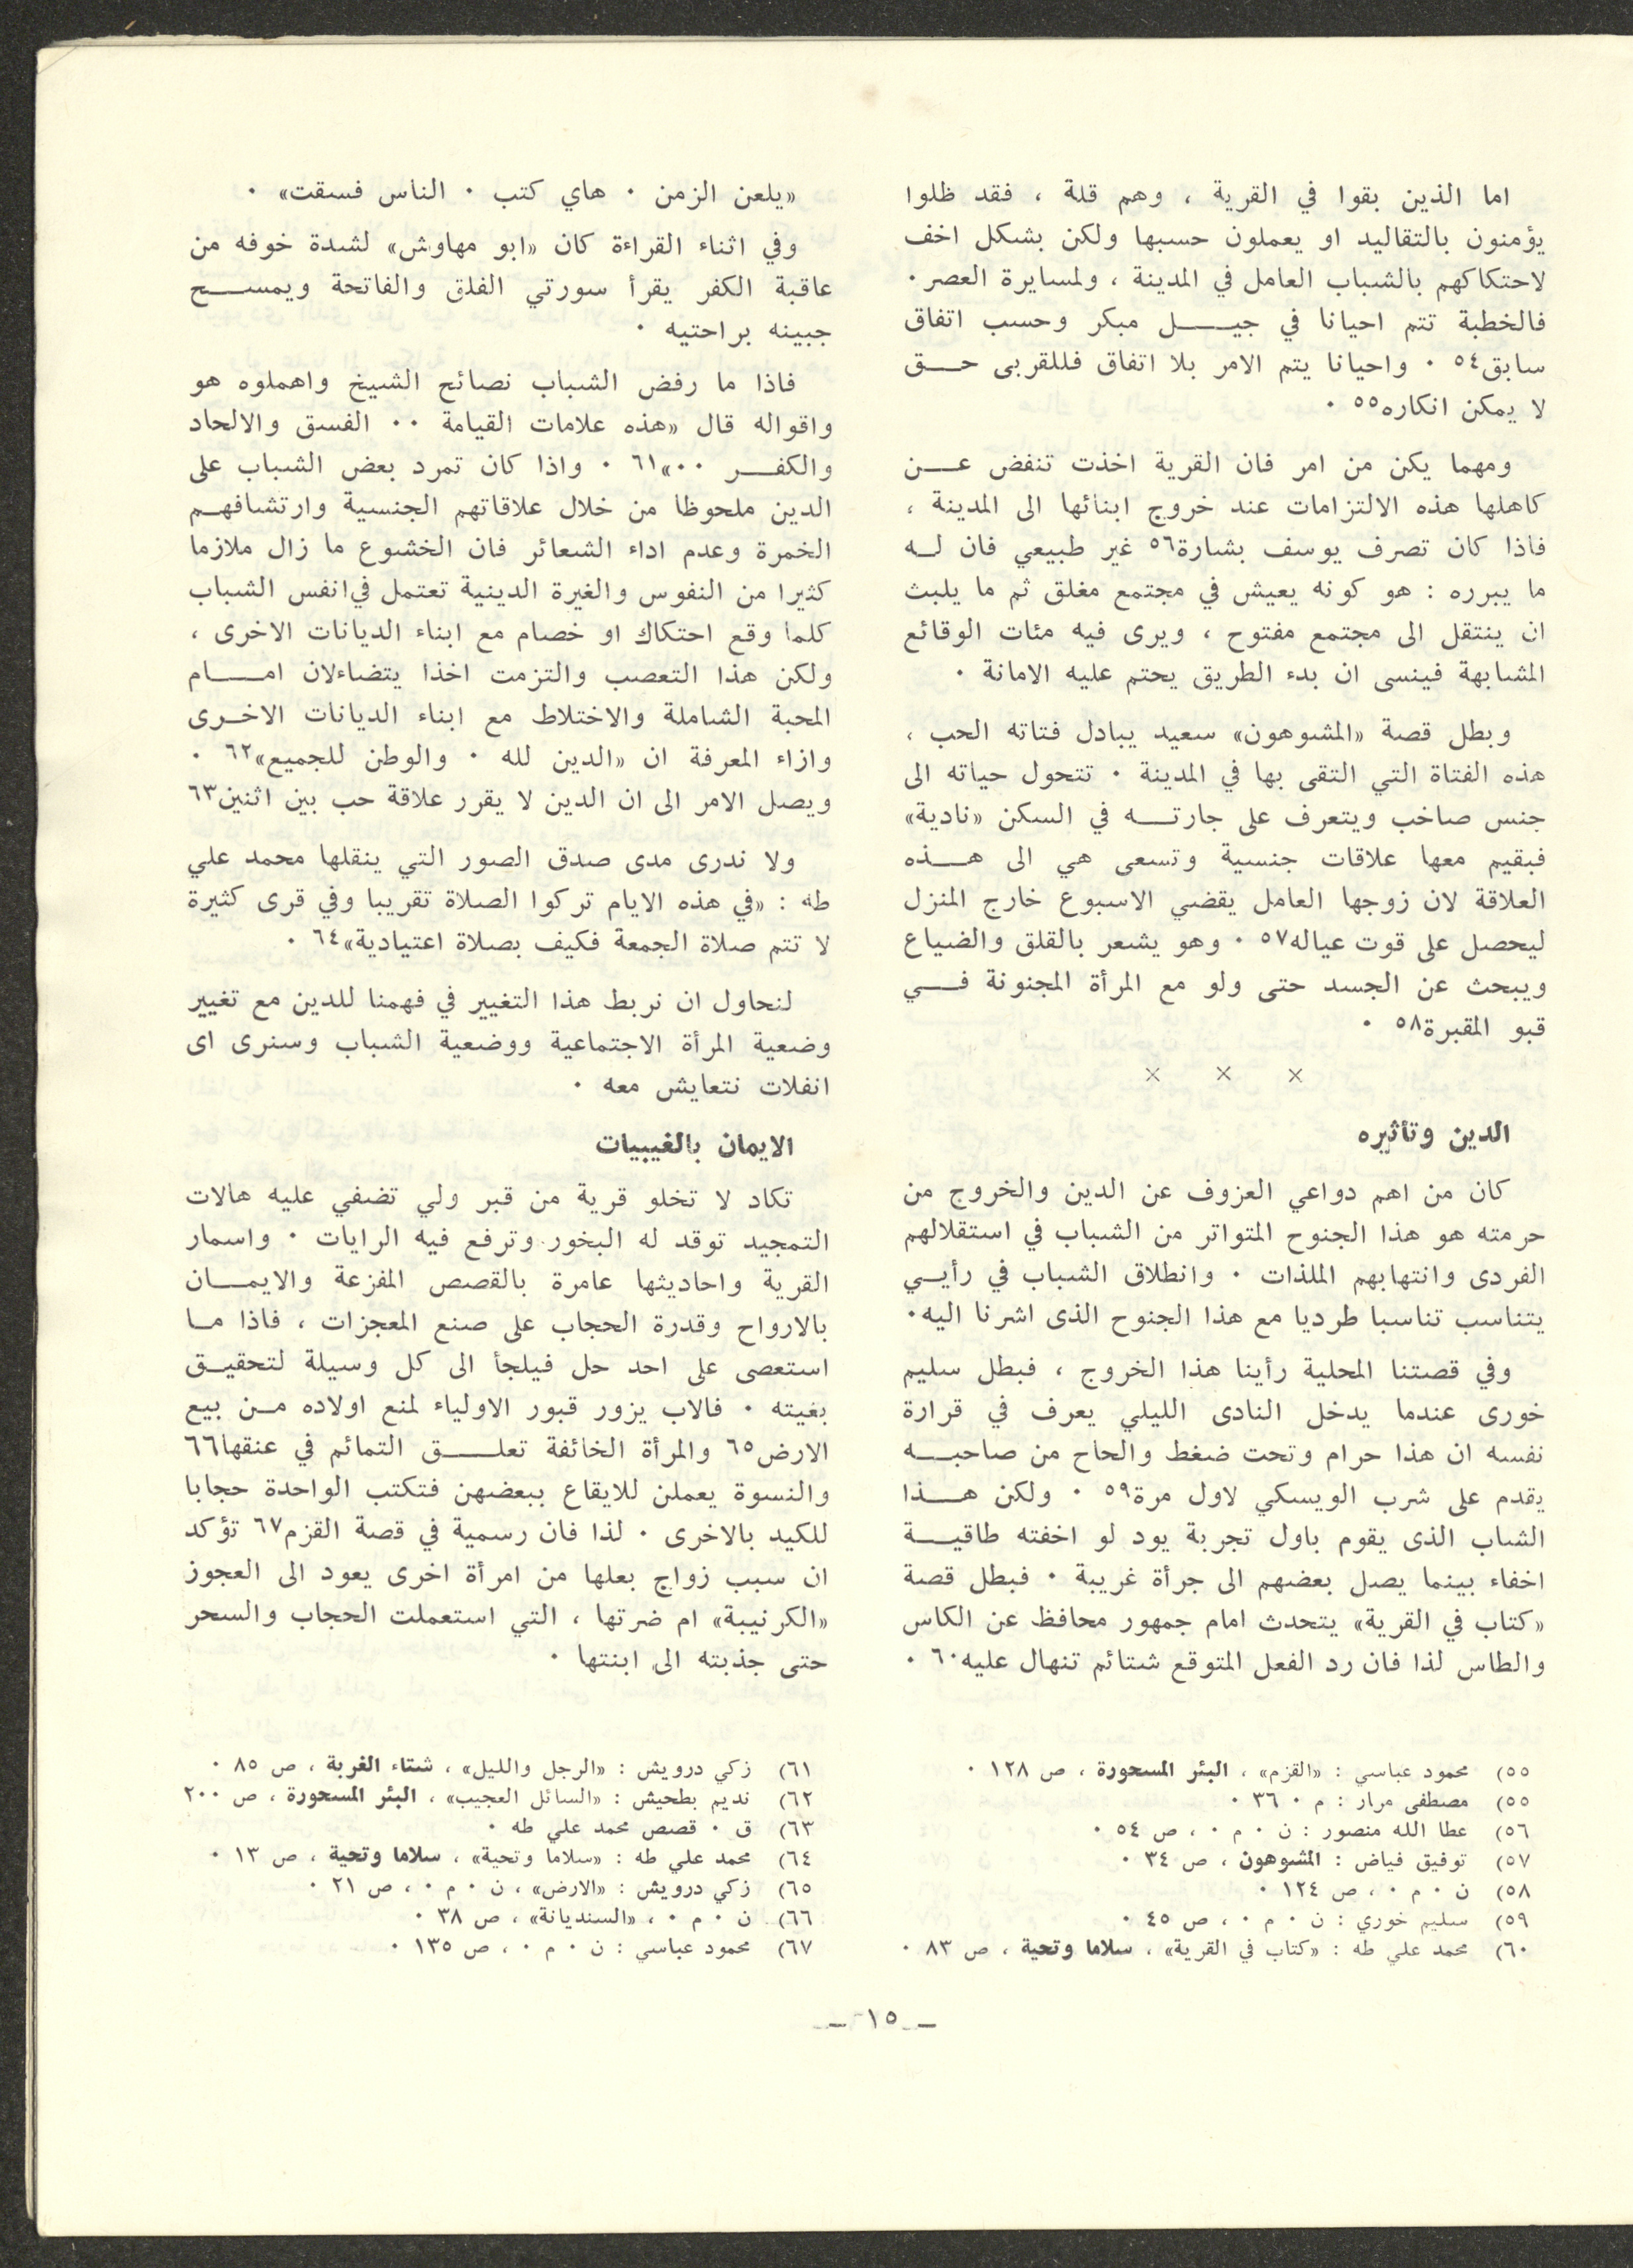 اما الذين بقوا في القرية ، وهم قلة ، فقد ظلوا
يؤمنون بالتقاليد او يعملون حسبها ولكن بشكل اخف
لاحتكاكهم بالشباب العامل في المدينة ، ولمسايرة العصر٠
فالخطبة تتم احيانا في جيل مبكر وحسب اتفاق
سابق٥٤ ٠ واحيانا يتم الامر بلا اتفاق فللقربى حق
لا يمكن انكاره٥٥ ٠
ومهما يكن من امر فان القرية اخذت تنفض عن
كاهلها هذه الالتزامات عند خروج ابنائها الى المدينة ،
فاذا كان تصرف يوسف بشارة٥٦ غير طبيعي فان له
ما يبرره : هو كونه يعيش في مجتمع مغلق ثم ما يلبث
ان ينتقل الى مجتمع مفتوح ، ويرى فيه مئات الوقائع
المشابهة فينسى ان بدء الطريق يحتم عليه الامانة ٠
وبطل قصة «المشوهون» سعيد يبادل فتاته الحب ،
هذه الفتاة التي التقى بها في المدينة ٠ تتحول حياته الى
جنس صاخب ويتعرف على جارته في السكن «نادية»
فيقيم معها علاقات جنسية وتسعى هي الى هذه
العلاقة لان زوجها العامل يقضي الاسبوع خارج المنزل
ليحصل على قوت عياله٥٧ ٠ وهو يشعر بالقلق والضياع
ويبحث عن الجسد حتى ولو مع المرأة المجنونة في
قبو المقبرة٥٨ ٠
× × ×
الدين وتأثيره
كان من اهم دواعي العزوف عن الدين والخروج من
حرمته هو هذا الجنوح المتواتر من الشباب في استقلالهم
الفردى وانتهابهم الملذات ٠ وانطلاق الشباب في رأيي
يتناسب تناسبا طرديا مع هذا الجنوح الذى اشرنا اليه٠
وفي قصتنا المحلية رأينا هذا الخروج ، فبطل سليم
خورى عندما يدخل النادى الليلي يعرف في قرارة
نفسه ان هذا حرام وتحت ضغط والحاح من صاحبه
يقدم على شرب الويسكي لاول مرة٥٩ ٠ ولكن هذا
الشاب الذى يقوم باول تجربة يود لو اخفته طاقية
اخفاء بينما يصل بعضهم الى جرأة غريبة ٠ فبطل قصة
«كتاب في القرية» يتحدث امام جمهور محافظ عن الكاس
والطاس لذا فان رد الفعل المتوقع شتائم تنهال عليه٦٠ ٠
٥٥) محمود عباسي : «القزم» ، البئر المسحورة ، ص ١٢٨ ٠
٥٥) مصطفى مرار : م ٠ ٣٦ ٠
٥٦) عطا الله منصور : ن ٠ م ٠ ، ص ٥٤ ٠
٥٧) توفيق فياض : المشوهون ، ص ٣٤ ٠
٥٨) ن ٠ م ٠ ، ص ١٢٤ ٠
٥٩) سليم خوري : ن ٠ م ٠ ، ص ٤٥ ٠
٦٠) محمد علي طه : «كتاب في القرية» ، سلاما وتحية ، ص ٨٣ ٠
«يلعن الزمن ٠ هاي كتب ٠ الناس فسقت» ٠
وفي اثناء القراءة كان «ابو مهاوش» لشدة خوفه من
عاقبة الكفر يقرأ سورتي الفلق والفاتحة ويمسح
جبينه براحتيه ٠
فاذا ما رفض الشباب نصائح الشيخ واهملوه هو
واقواله قال «هذه علامات القيامة ٠٠ الفسق والالحاد
والكفر ٠٠»٦١ ٠ واذا كان تمرد بعض الشباب على
الدين ملحوظا من خلال علاقاتهم الجنسية وارتشافهم
الخمرة وعدم اداء الشعائر فان الخشوع ما زال ملازما
كثيرا من النفوس والغيرة الدينية تعتمل في انفس الشباب
كلما وقع احتكاك او خصام مع ابناء الديانات الاخرى ،
ولكن هذا التعصب والتزمت اخذا يتضاءلان امام
المحبة الشاملة والاختلاط مع ابناء الديانات الاخرى
وازاء المعرفة ان «الدين لله ٠ والوطن للجميع»٦٢ ٠
ويصل الامر الى ان الدين لا يقرر علاقة حب بين اثنين٦٣
ولا ندرى مدى صدق الصور التي ينقلها محمد علي
طه : «في هذه الايام تركوا الصلاة تقريبا وفي قرى كثيرة
لا تتم صلاة الجمعة فكيف بصلاة اعتيادية»٦٤ ٠
لنحاول ان نربط هذا التغيير في فهمنا للدين مع تغيير
وضعية المرأة الاجتماعية ووضعية الشباب وسنرى اى
انفلات نتعايش معه ٠
الايمان بالغيبيات
تكاد لا تخلو قرية من قبر ولي تضفي عليه هالات
التمجيد توقد له البخور وترفع فيه الرايات ٠ واسمار
القرية واحاديثها عامرة بالقصص المفزعة والايمان
بالارواح وقدرة الحجاب على صنع المعجزات ، فاذا ما
استعصى على احد حل فيلجأ الى كل وسيلة لتحقيق
بغيته ٠ فالاب يزور قبور الاولياء لمنع اولاده من بيع
الارض٦٥ والمرأة الخائفة تعلق التمائم في عنقها٦٦
والنسوة يعملن للايقاع ببعضهن فتكتب الواحدة حجابا
للكيد بالاخرى ٠ لذا فان رسمية في قصة القزم٦٧ تؤكد
ان سبب زواج بعلها من امرأة اخرى يعود الى العجوز
«الكرنيبة» ام ضرتها ، التي استعملت الحجاب والسحر
حتى جذبته الى ابنتها ٠
٦١) زكي درويش : «الرجل والليل» ، شتاء الغربة ، ص ٨٥ ٠
٦٢) نديم بطحيش : «السائل العجيب» ، البئر المسحورة ، ص ٢٠٠
٦٣) ق ٠ قصص محمد علي طه ٠
٦٤) محمد علي طه : «سلاما وتحية» ، سلاما وتحية ، ص ١٣ ٠
٦٥) زكي درويش : «الارض» ، ن ٠ م ٠ ، ص ٢١ ٠
٦٦) ن ٠ م ٠ ، «السنديانة» ، ص ٣٨ ٠
٦٧) محمود عباسي : ن ٠ م ٠ ، ص ١٣٥ ٠
– ١٥ –